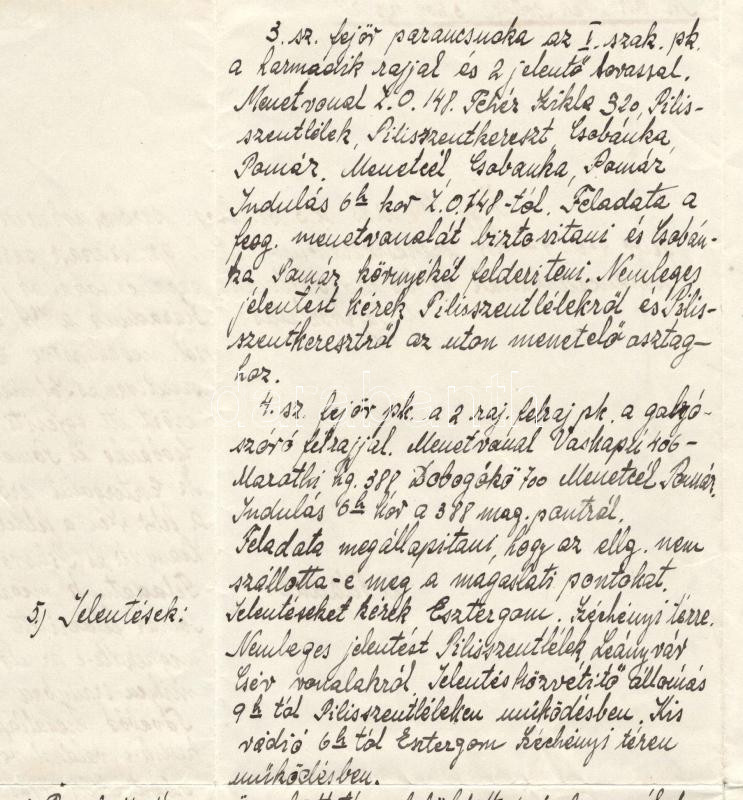 3. sz. fejőr parancsnoka az I. szak. pk.
a harmadik rajjal és 2 jelentő lovassal.
Menetvonal Z.O. 148. Fehér Szikla 320, Pilis-
szentlélek, Pilisszentkereszt, Csobánka,
Pomáz. Menetcél, Csobanka, Pomáz
Indulás 6h kor Z.O.148-tól. Feladata a
fegg. menetvonalát biztositani és Csobán-
ka Pomáz környékét felderiteni. Nemleges
jelentést kérek Pilisszentlélekről és Pilis-
szentkeresztről az uton menetelő osztag-
hoz.
4. sz. fejőr pk. a 2 raj. felraj pk. a golyó-
szóró félrajjal. Menetvonal Vaskapu 406-
Maróthi hg. 388 Dobogókő 700 Menetcél Pomáz,
Indulás 6h kor a 388 mag. pontról,
Feladata megállapitani, hogy az ellg. nem
szállotta-e meg a magaslati pontokat.
5) Jelentések: Jelentéseket kérek Esztergom. Széchényi térre.
Nemleges jelentést Pilisszentlélek, Leányvár
Csév vonalakról, Jelentésközvetitő állomás
9h tól Pilisszentléleken működésben. Kis
rádió 6h tól Esztergom Széchényi téren
működésben.